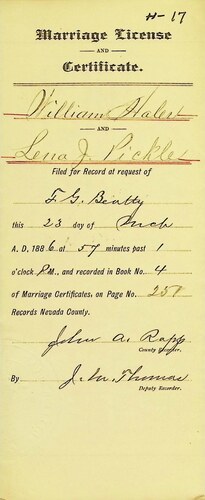 H-17
Marriage License
AND
Certificate.
William Haley
AND
Lena J Pickle
Filed for Record at request of
F. G. Beatty
this 23 day of Mch
A. D. 1886 at 57 minutes past 1
o'clock P.M., and recorded in Book No. 4
of Marriage Certificates, on Page No. 251
Records Nevada County.
John A. Rapp
County Recorder.
By Jno. Thomas
Deputy Recorder.